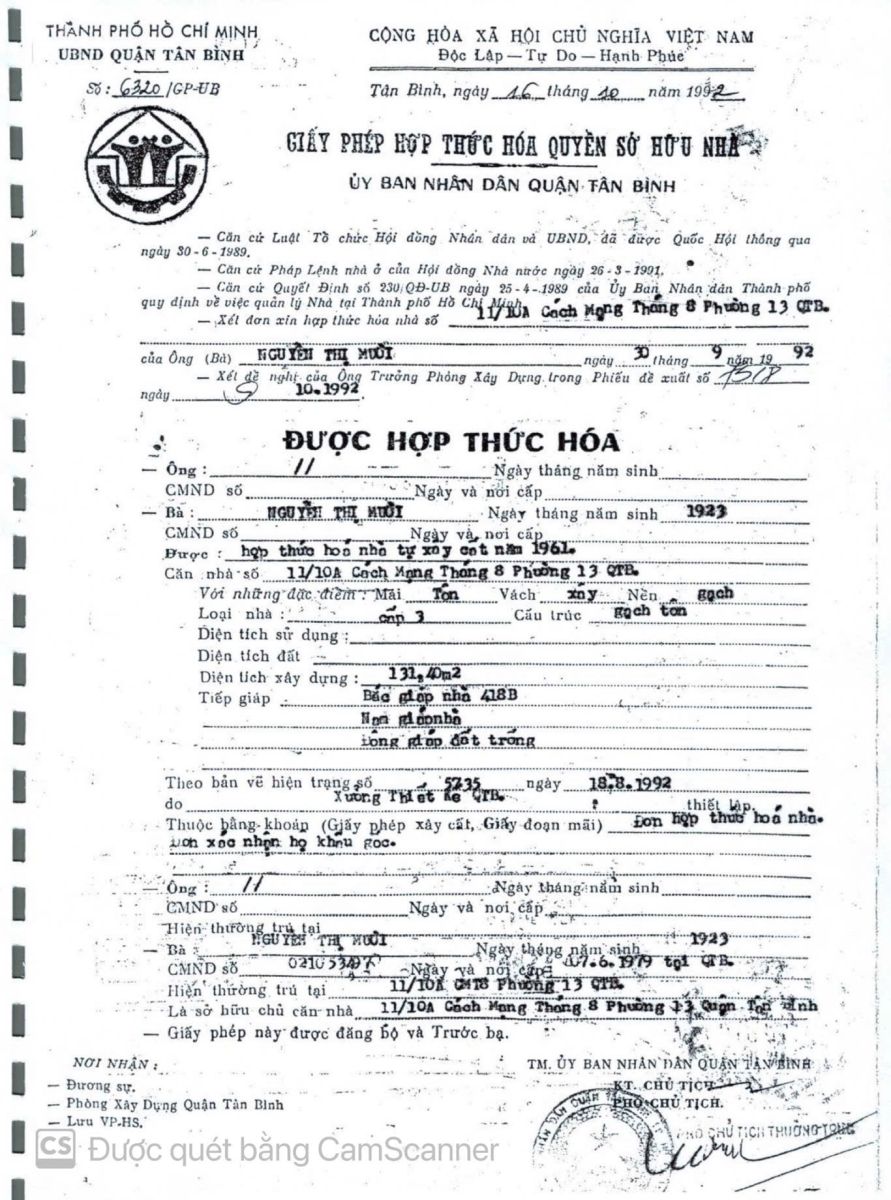 THÀNH PHỐ HỒ CHÍ MINH
UBND QUẬN TÂN BÌNH
Số: 6320/GP-UB
CỘNG HÒA XÃ HỘI CHỦ NGHĨA VIỆT NAM
Độc Lập — Tự Do — Hạnh Phúc
Tân Bình, ngày 16 tháng 10 năm 1992
GIẤY PHÉP HỢP THỨC HÓA QUYỀN SỞ HỮU NHÀ
ỦY BAN NHÂN DÂN QUẬN TÂN BÌNH
— Căn cứ Luật Tổ chức Hội đồng Nhân dân và UBND, đã được Quốc Hội thông qua
ngày 30-6-1989.
— Căn cứ Pháp Lệnh nhà ở của Hội đồng Nhà nước ngày 26-3-1991.
— Căn cứ Quyết Định số 230/QĐ-UB ngày 25-4-1989 của Ủy Ban Nhân dân Thành phố
quy định về việc quản lý Nhà tại Thành phố Hồ Chí Minh
— Xét đơn xin hợp thức hóa nhà số 11/10A Cách Mạng Tháng 8 Phường 13 QTB.
của Ông (Bà) NGUYỄN THỊ MUỜI ngày 30 tháng 9 năm 19 92
— Xét đề nghị của Ông Trưởng Phòng Xây Dựng trong Phiếu đề xuất số
ngày 10.1992.
ĐƯỢC HỢP THỨC HÓA
— Ông : // Ngày tháng năm sinh
CMND số Ngày và nơi cấp
— Bà : NGUYỄN THỊ MUỜI Ngày tháng năm sinh 1923
CMND số Ngày và nơi cấp
Được : hợp thức hoá nhà tự xây cất năm 1961.
Căn nhà số 11/10A Cách Mạng Tháng 8 Phường 13 QTB.
Với những đặc điểm: Mái Tôn Vách xây Nền gạch
Loại nhà : cấp 3 Cấu trúc gạch tôn
Diện tích sử dụng :
Diện tích đất
Diện tích xây dựng : 131,40m2
Tiếp giáp Bắc giáp nhà 418B
Nam giáp nhà
Đông giáp đất trống
Theo bản vẽ hiện trạng số 5735 ngày 18.8.1992
do Xưởng Thiết Kế QTB. thiết lập.
Thuộc bằng khoán (Giấy phép xây cất, Giấy đoạn mãi) Đơn hợp thức hoá nhà.
Đơn xác nhận hộ khẩu gốc.
— Ông : // Ngày tháng năm sinh
CMND số Ngày và nơi cấp
Hiện thường trú tại
— Bà : NGUYỄN THỊ MUỜI Ngày tháng năm sinh 1923
CMND số Ngày và nơi cấp 07.6.1979 tại QTB.
Hiện thường trú tại 11/10A CMT8 Phường 13 QTB.
Là sở hữu chủ căn nhà 11/10A Cách Mạng Tháng 8 Phường 13 Quận Tân Bình
— Giấy phép này được đăng bộ và Trước bạ.
NƠI NHẬN :
— Đương sự.
— Phòng Xây Dựng Quận Tân Bình
— Lưu VP-HS.
TM. ỦY BAN NHÂN DÂN QUẬN TÂN BÌNH
KT. CHỦ TỊCH
PHÓ CHỦ TỊCH.
PHÓ CHỦ TỊCH THƯỜNG TRỰC
CS Được quét bằng CamScanner